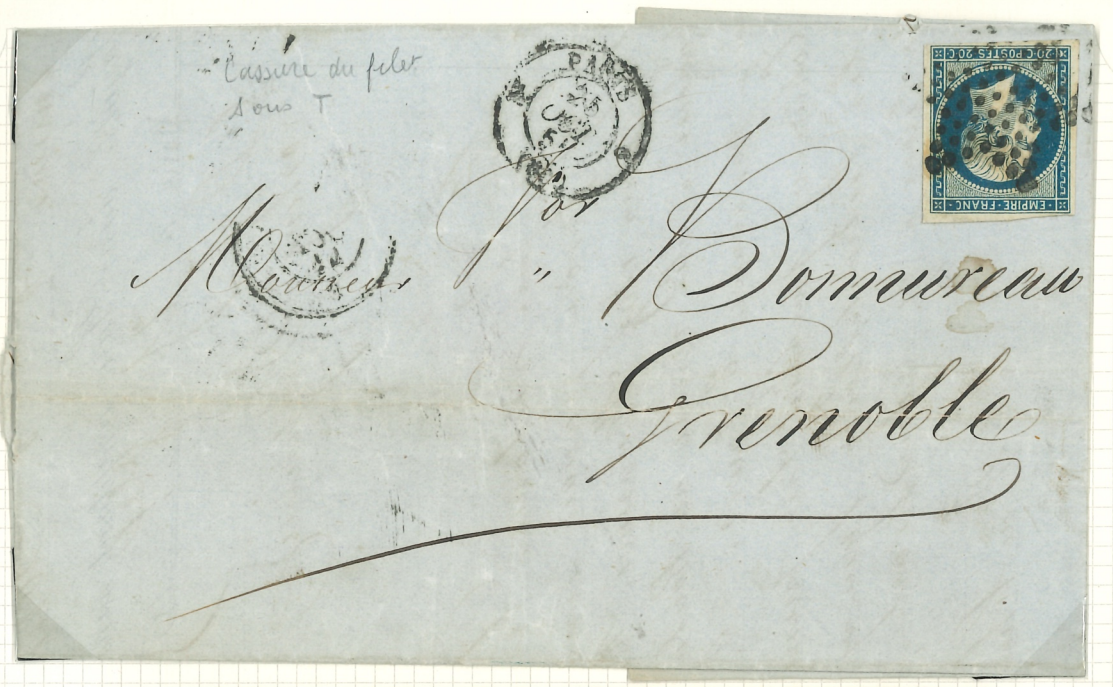 Cassure du filet
sous T
PARIS
20·C·POSTES·20·C
EMPIRE·FRANC
Monsieur Vor " Bonnureau
Grenoble